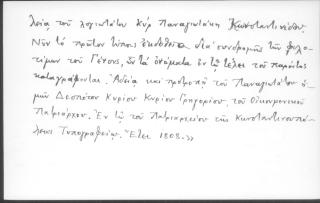 λείᾳ τοῦ λογιωτάτου Κύρ Παναγιωτάκη Κωνσταντινίδου.
Νῦν τὸ πρῶτον τύποις ἐκδοθεῖσα διὰ συνδρομῆς τῶν φιλο-
τίμων τοῦ Γένους, ὧν τὰ ὀνόματα ἐν τῷ τέλει τοῦ παρόντος
καταγράφονται. Ἀδείᾳ καὶ προτροπῇ τοῦ Παναγιωτάτου ἡ-
μῶν Δεσπότου Κυρίου Κυρίου Γρηγορίου, τοῦ Οἰκουμενικοῦ
Πατριάρχου. Ἐν τῷ τοῦ Πατριαρχείου τῆς Κωνσταντινουπό-
λεως Τυπογραφείῳ. Ἔτει 1808.»